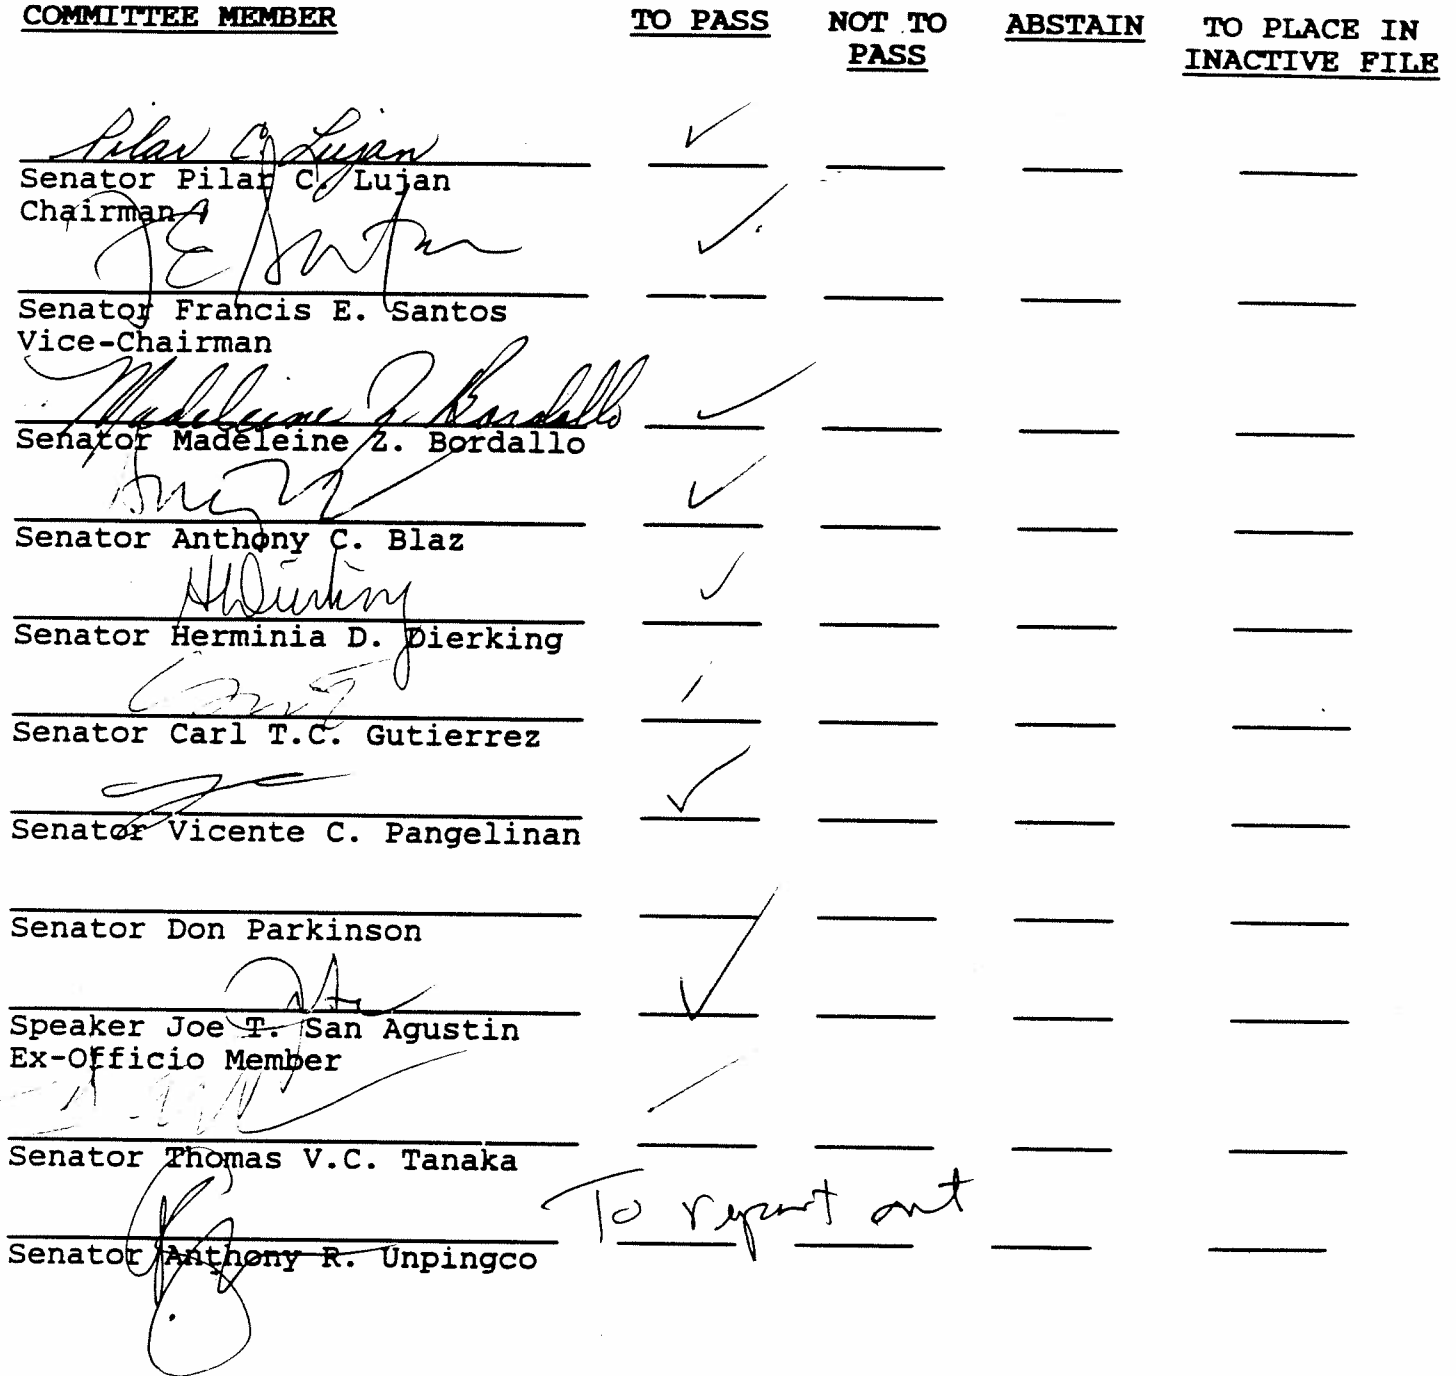 COMMITTEE MEMBER TO PASS NOT TO PASS ABSTAIN TO PLACE IN INACTIVE FILE
Pilar C. Lujan
Senator Pilar C. Lujan
Chairman
F E Santos
Senator Francis E. Santos
Vice-Chairman
Madeleine Z. Bordallo
Senator Madeleine Z. Bordallo
Senator Anthony C. Blaz
HDierking
Senator Herminia D. Dierking
Senator Carl T.C. Gutierrez
Senator Vicente C. Pangelinan
Senator Don Parkinson
Speaker Joe T. San Agustin
Ex-Officio Member
Senator Thomas V.C. Tanaka
To report out
Senator Anthony R. Unpingco